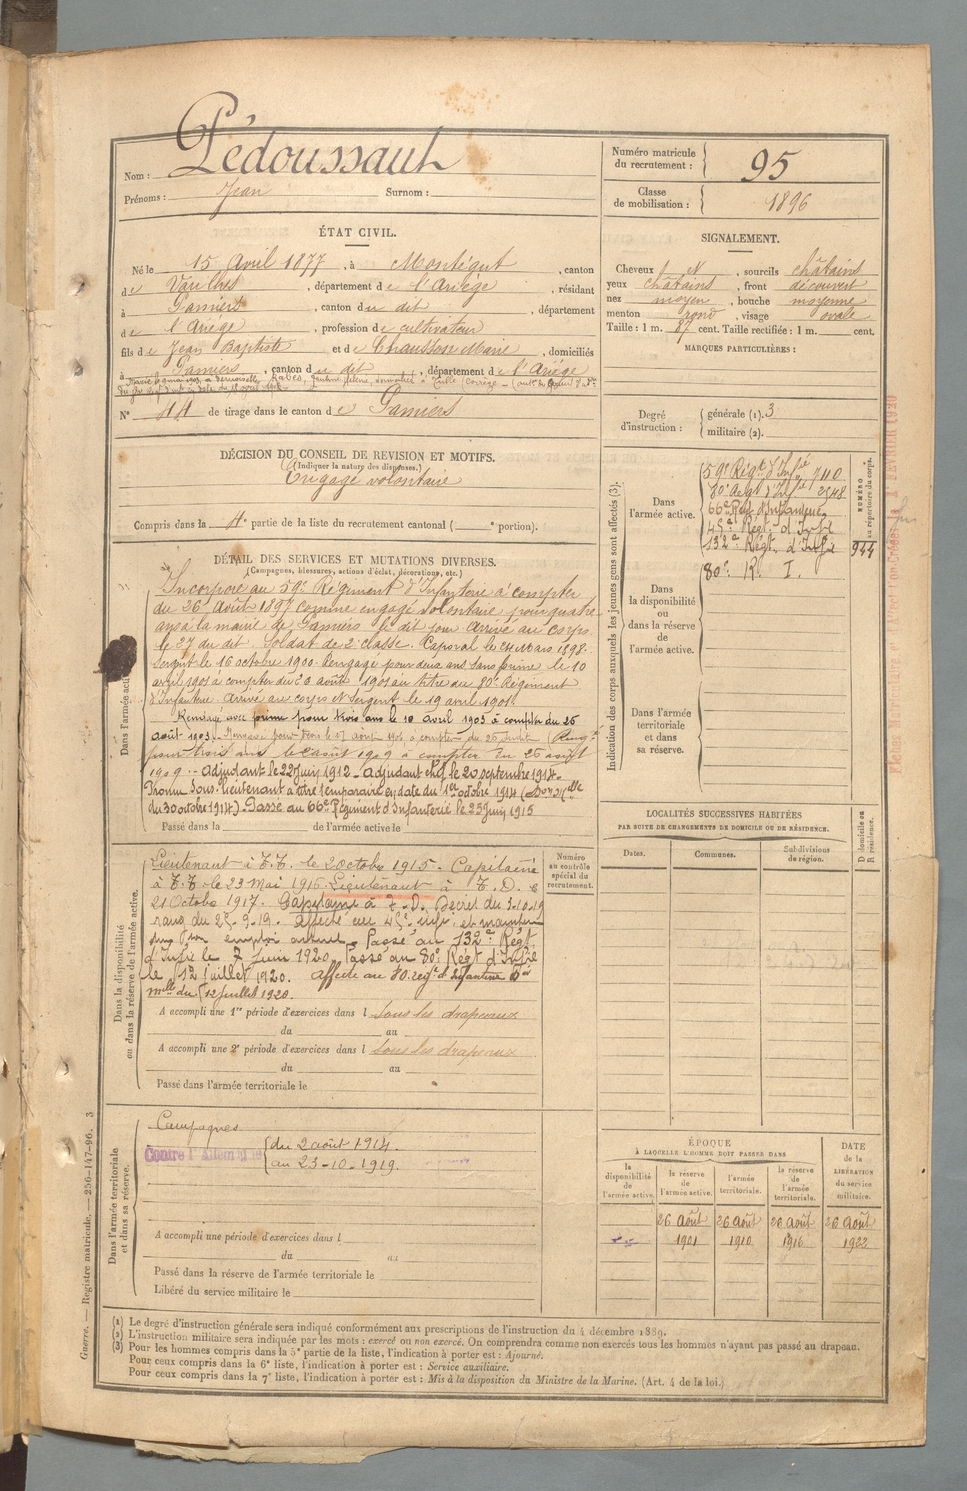 Nom : Pédoussaut
Prénoms : Jean Surnom :
Numéro matricule du recrutement : 95
Classe de mobilisation : 1896
ÉTAT CIVIL.
Né le 15 Avril 1877, à Montégut, canton
de Varilhes, département de l'Ariège, résidant
à Pamiers, canton du dit, département
de l'Ariège, profession de cultivateur
fils de Jean Baptiste et de Chausson Marie, domiciliés
à Pamiers, canton du dit, département de l'Ariège
Marié le 9 mai 1903 à demoiselle Rabès, domiciliée à Tulle (Corrèze)
N° 44 de tirage dans le canton de Pamiers
SIGNALEMENT.
Cheveux et, sourcils châtains
yeux châtains, front découvert
nez moyen, bouche moyenne
menton rond, visage ovale
Taille : 1 m. 67 cent. Taille rectifiée : 1 m. cent.
MARQUES PARTICULIÈRES :
Degré d'instruction : générale (1). 3
militaire (2).
DÉCISION DU CONSEIL DE REVISION ET MOTIFS.
(Indiquer la nature des dispenses.)
Engagé volontaire
Compris dans la 4e partie de la liste du recrutement cantonal ( e portion).
DÉTAIL DES SERVICES ET MUTATIONS DIVERSES.
(Campagnes, blessures, actions d'éclat, décorations, etc.)
Dans l'armée active.
Incorporé au 59e Régiment d'Infanterie à compter
du 26 Août 1897 comme engagé volontaire pour quatre
ans à la mairie de Pamiers le dit jour. Arrivé au corps
le 27 du dit. Soldat de 2e classe. Caporal le 24 Mars 1898.
Sergent le 16 octobre 1900. Rengagé pour deux ans sans prime le 10
avril 1901 à compter du 26 août 1901 au titre du 80e Régiment
d'Infanterie. Arrivé au corps et Sergent le 19 avril 1901.
Rengagé avec prime pour trois ans le 10 avril 1903 à compter du 26
août 1903. Rengagé pour trois ans le août 1906 à compter du 26 (Rengé
pour trois ans le août 1909 à compter du 26 août
1909. - Adjudant le 22 Juin 1912 - Adjudant chef le 20 septembre 1914.
Promu Sous-lieutenant à titre temporaire en date du 1er octobre 1914 (Don Mlle
du 30 octobre 1914) Passé au 66e Régiment d'Infanterie le 23 Juin 1915
Passé dans la de l'armée active le
Dans la disponibilité ou dans la réserve de l'armée active.
Lieutenant à T.T. le 2 octobre 1915 - Capitaine
à T.T. le 23 Mai 1916. Lieutenant à T.D. le
21 Octobre 1917. Capitaine à T.D. Décret du 3-10-19
rang du 25-9-19. Affecté au 45e infie et maintenu
dans son emploi actuel. Passé au 132e Régt
d'Infie le 7 Juin 1920. Passé au 80e Régt d'Infie
le 12 juillet 1920. Affecté au 80e regt d'Infanterie
mlle du 12 juillet 1920.
A accompli une 1re période d'exercices dans l Sous les drapeaux
du au
A accompli une 2e période d'exercices dans l Sous les drapeaux
du au
Passé dans l'armée territoriale le
Numéro au contrôle spécial du recrutement.
Dans l'armée territoriale et dans sa réserve.
Campagnes
Contre l'Allemagne { du 2 août 1914.
au 23-10-1919.
A accompli une période d'exercices dans l
du au
Passé dans la réserve de l'armée territoriale le
Libéré du service militaire le
Indication des corps auxquels les jeunes gens sont affectés (3).
NUMÉRO au répertoire du corps.
Dans l'armée active.
59e Régt d'Infie 1110
80e Regt d'Infie 2548
66e Rég d'Infanterie
45e Régt. d'Infie
132e Régt. d'Infie 944
80e R. I.
Dans la disponibilité ou dans la réserve de l'armée active.
Dans l'armée territoriale et dans sa réserve.
LOCALITÉS SUCCESSIVES HABITÉES
PAR SUITE DE CHANGEMENTS DE DOMICILE OU DE RÉSIDENCE.
Dates. Communes. Subdivisions de région. D domicile ou R résidence.
ÉPOQUE
À LAQUELLE L'HOMME DOIT PASSER DANS
la disponibilité de l'armée active. la réserve de l'armée active. l'armée territoriale. la réserve de l'armée territoriale.
DATE de la LIBÉRATION du service militaire.
26 Août 26 Août 26 Août 26 Août
1901 1910 1916 1922
Guerre. — Registre matricule. — 256-147-96. 3
(1) Le degré d'instruction générale sera indiqué conformément aux prescriptions de l'instruction du 4 décembre 1889.
(2) L'instruction militaire sera indiquée par les mots : exercé ou non exercé. On comprendra comme non exercés tous les hommes n'ayant pas passé au drapeau.
(3) Pour les hommes compris dans la 5e partie de la liste, l'indication à porter est : Ajourné.
Pour ceux compris dans la 6e liste, l'indication à porter est : Service auxiliaire.
Pour ceux compris dans la 7e liste, l'indication à porter est : Mis à la disposition du Ministre de la Marine. (Art. 4 de la loi.)